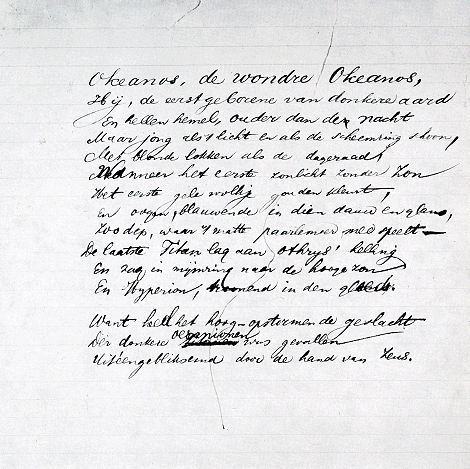 Okeanos, de wondre Okeanos,
Hij, de eerstgeborene van donkere aard
En hellen hemel, ouder dan de nacht
Maar jong als 't licht en als de scheemring schoon,
Met blonde lokken als de dageraad,
Wanneer het eerste zonlicht zonder zon
Het eerste gele wolkje gouden kleurt,
En oogen, blauwende in dien dauw en glans,
Zoo diep, waar 't matte paarlemoer mee speelt —
De laatste Titan lag aan Othrys' helling
En zag in mijmring naar de hooge zon
En Hyperion, tronend in den gloed.
Want heel het hoog-opstormende geslacht
Dèr donkere was gevallen
Uitééngebliksemd door de hand van Zeus.